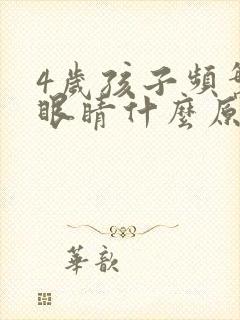 4歲孩子頻
眼睛什麼原
華歆